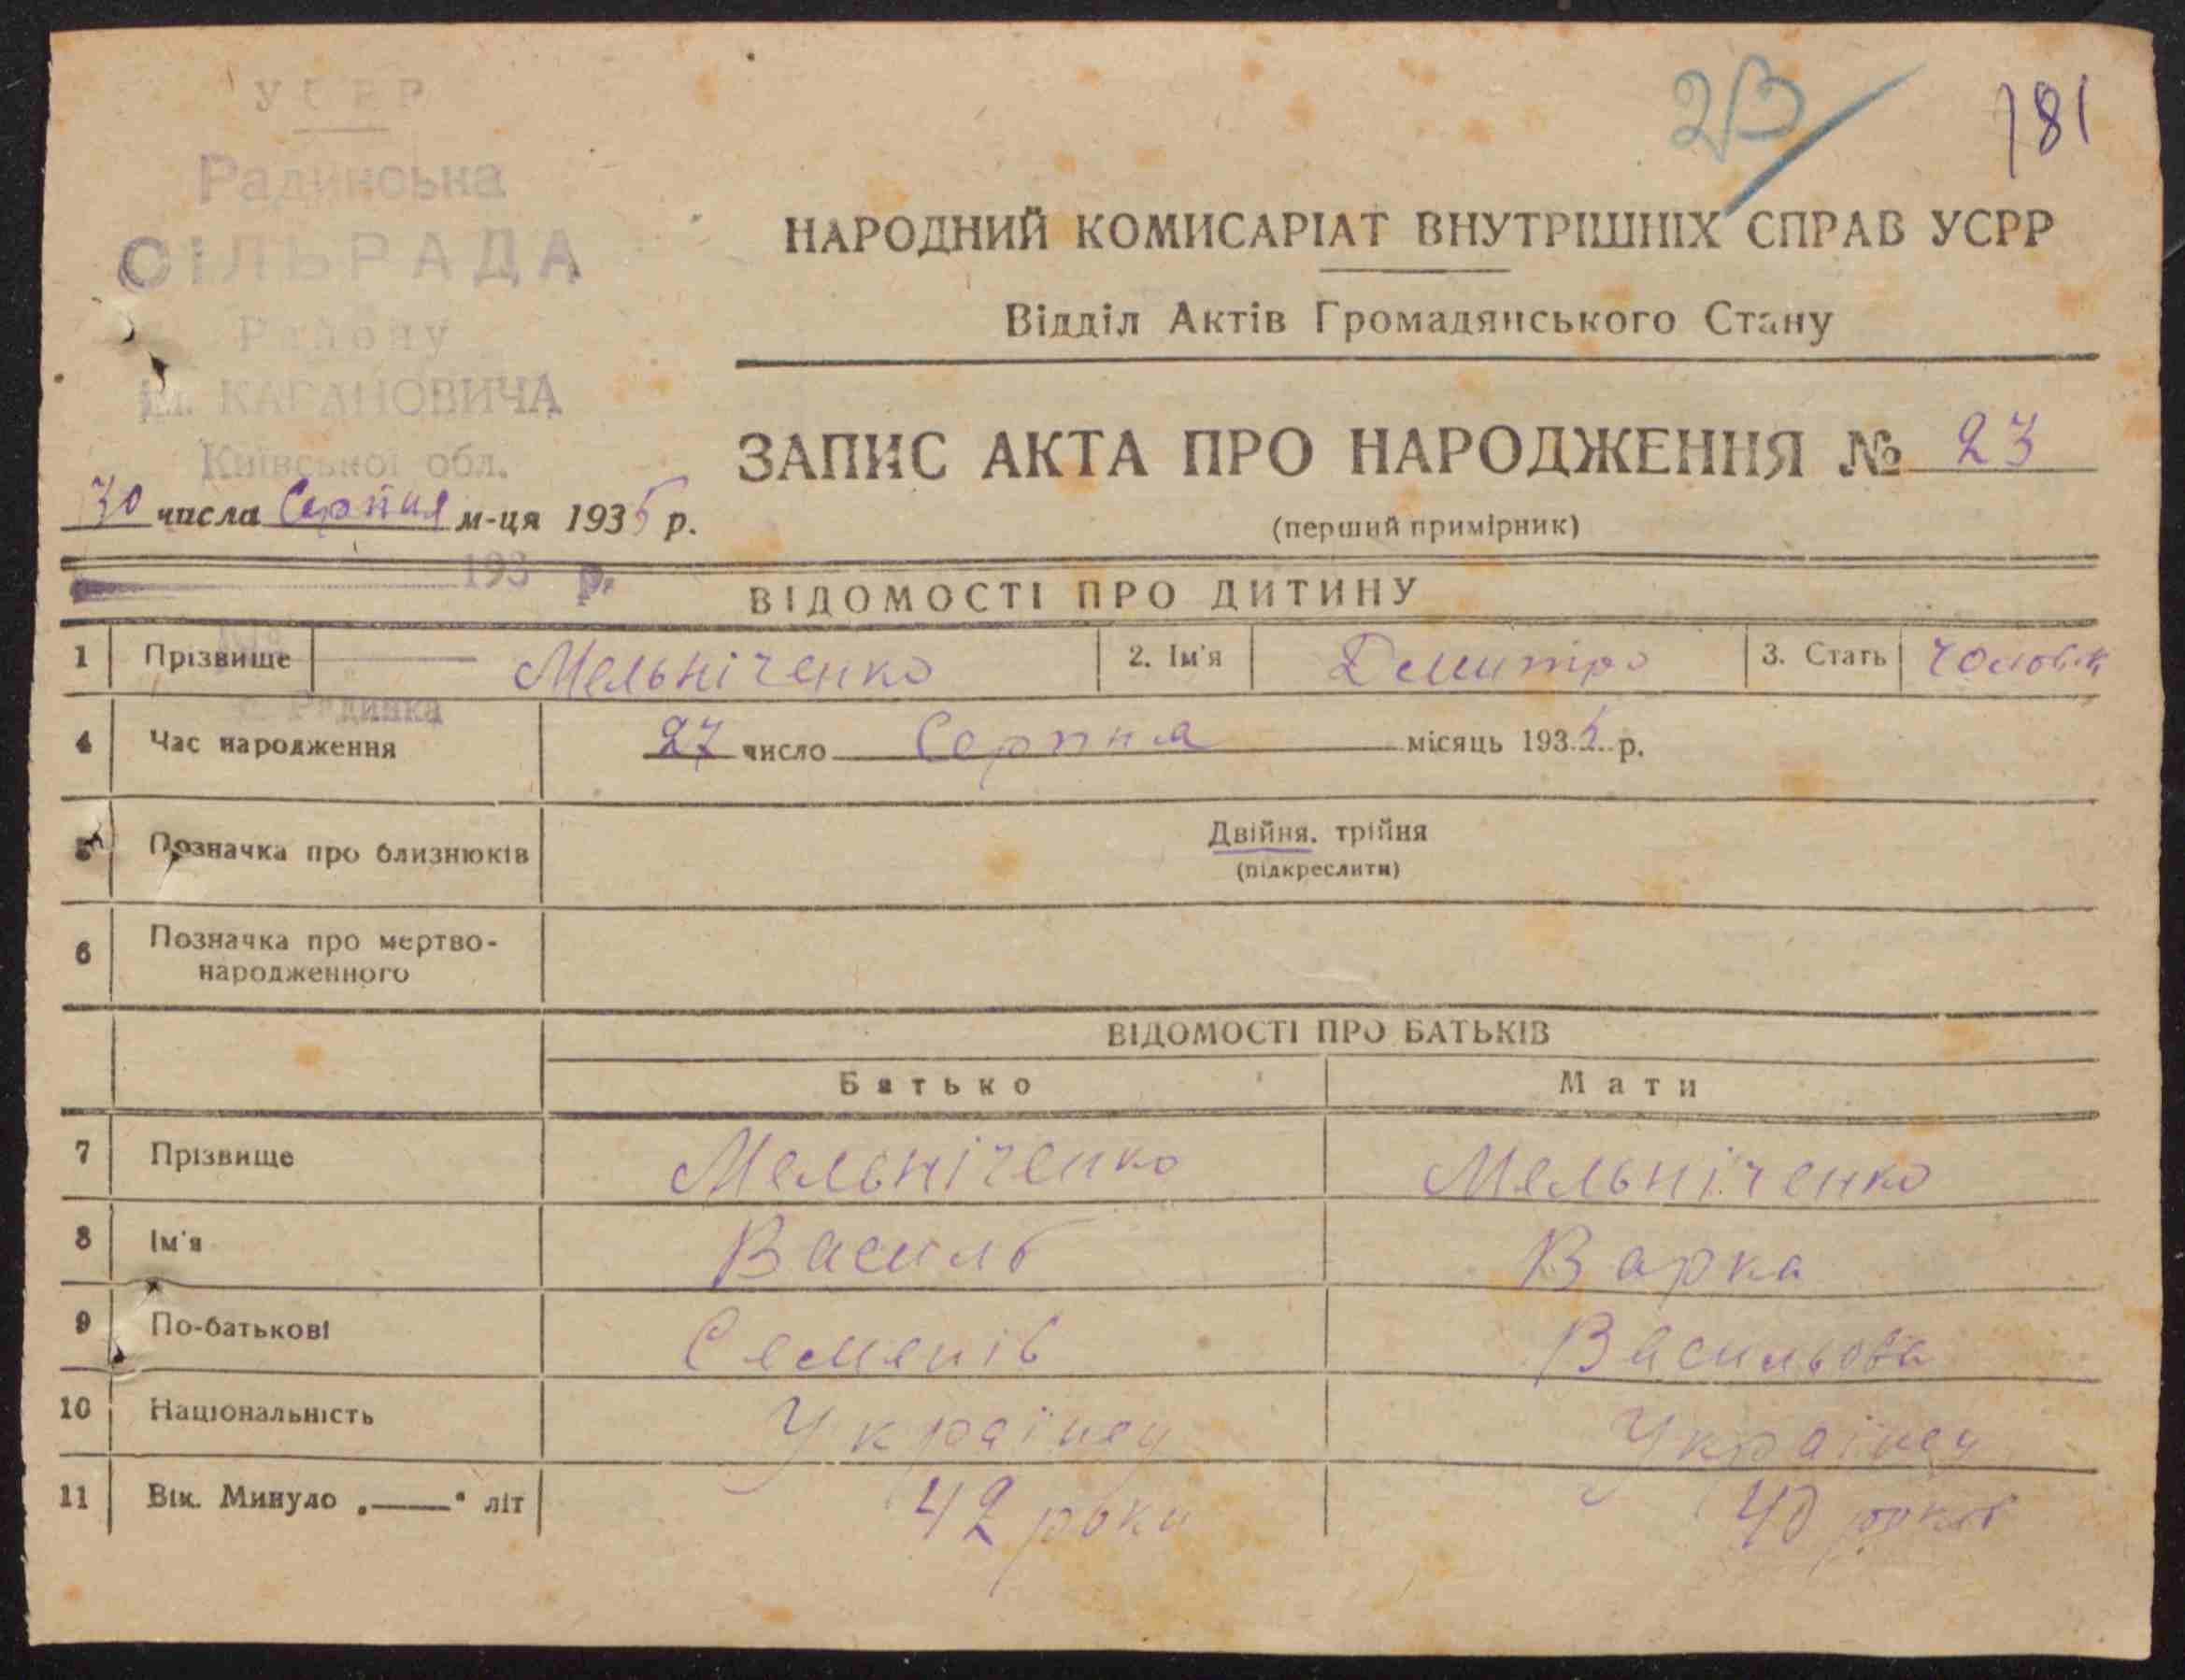 УСРР
Радинська
СІЛЬРАДА
Району
ім. КАГАНОВИЧА
Київської обл.
23
181
НАРОДНИЙ КОМИСАРІАТ ВНУТРІШНІХ СПРАВ УСРР
Відділ Актів Громадянського Стану
ЗАПИС АКТА ПРО НАРОДЖЕННЯ № 23
(перший примірник)
30 числа Серпня м-ця 1935 р.
193 р.
ВІДОМОСТІ ПРО ДИТИНУ
1 Прізвище Мельніченко 2. Ім'я Дмитро 3. Стать чоловік
с. Радинка
4 Час народження 27 число Серпня місяць 1935 р.
5 Позначка про близнюків Двійня, трійня
(підкреслити)
6 Позначка про мертво-
народженного
ВІДОМОСТІ ПРО БАТЬКІВ
Батько Мати
7 Прізвище Мельніченко Мельніченко
8 Ім'я Василь Варка
9 По-батькові Семенів Васильова
10 Національність Українец Українец
11 Вік. Минуло „——“ літ 42 роки 40 років